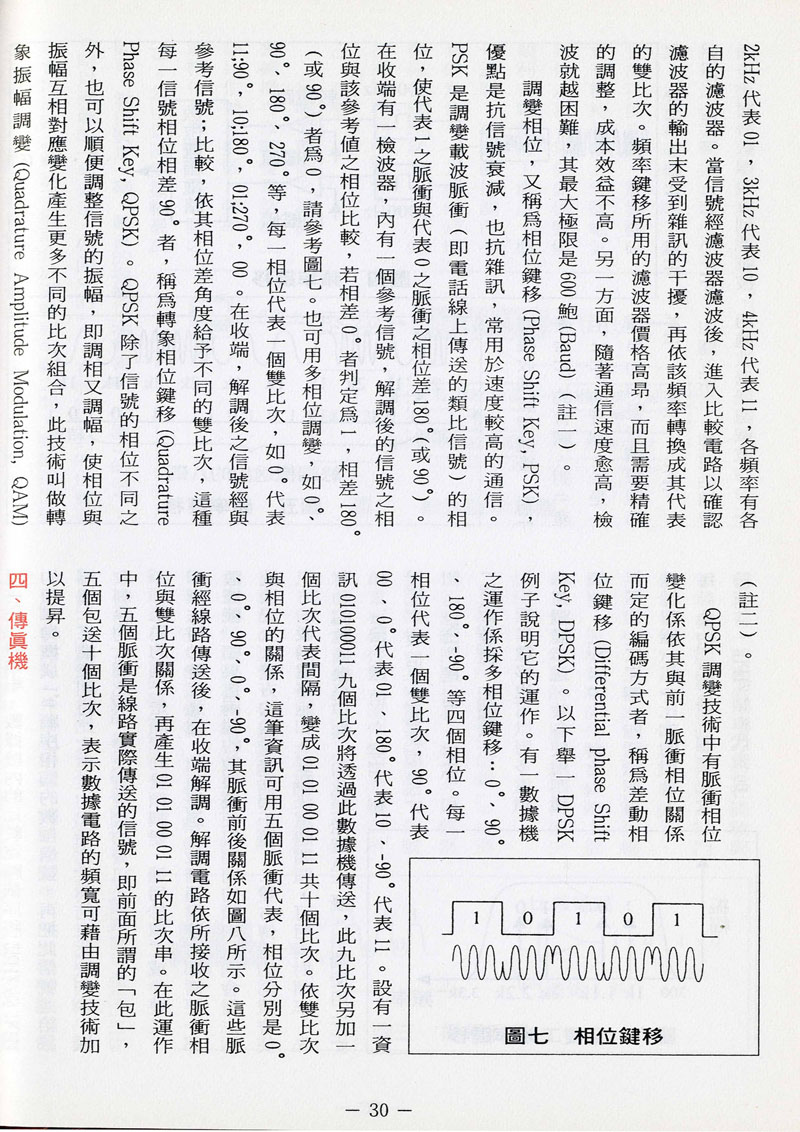 2kHz 代表 01，3kHz 代表 10，4kHz 代表 11，各頻率有各
自的濾波器。當信號經濾波器濾波後，進入比較電路以確認
濾波器的輸出末受到雜訊的干擾，再依該頻率轉換成其代表
的雙比次。頻率鍵移所用的濾波器價格高昂，而且需要精確
的調整，成本效益不高。另一方面，隨著通信速度愈高，檢
波就越困難，其最大極限是 600 鮑(Baud)（註一）。
調變相位，又稱爲相位鍵移(Phase Shift Key, PSK)，
優點是抗信號衰減，也抗雜訊，常用於速度較高的通信。
PSK 是調變載波脈衝（即電話線上傳送的類比信號）的相
位，使代表 1 之脈衝與代表 0 之脈衝之相位差 180°（或 90°）。
在收端有一檢波器，內有一個參考信號，解調後的信號之相
位與該參考值之相位比較，若相差 0°者判定爲 1，相差 180°
（或 90°）者爲 0，請參考圖七。也可用多相位調變，如 0°、
90°、180°、270°等，每一相位代表一個雙比次，如 0°代表
11;90°，10;180°，01;270°，00。在收端，解調後之信號經與
參考信號；比較，依其相位差角度給予不同的雙比次，這種
每一信號相位相差 90°者，稱爲轉象相位鍵移(Quadrature
Phase Shift Key, QPSK)。QPSK 除了信號的相位不同之
外，也可以順便調整信號的振幅，即調相又調幅，使相位與
振幅互相對應變化產生更多不同的比次組合，此技術叫做轉
象振幅調變(Quadrature Amplitude Modulation, QAM)
（註二）。
QPSK 調變技術中有脈衝相位
變化係依其與前一脈衝相位關係
而定的編碼方式者，稱爲差動相
位鍵移(Differential phase Shift
Key, DPSK)。以下舉一 DPSK
例子說明它的運作。有一數據機
之運作係採多相位鍵移：0°、90°
、180°、-90°等四個相位。每一
相位代表一個雙比次，90°代表
00、0°代表 01、180°代表 10、-90°代表 11。設有一資
訊 010100011 九個比次將透過此數據機傳送，此九比次另加一
個比次代表間隔，變成 01 01 00 01 11 共十個比次。依雙比次
與相位的關係，這筆資訊可用五個脈衝代表，相位分別是 0°
、0°、90°、0°、-90°，其脈衝前後關係如圖八所示。這些脈
衝經線路傳送後，在收端解調。解調電路依所接收之脈衝相
位與雙比次關係，再產生 01 01 00 01 11 的比次串。在此運作
中，五個脈衝是線路實際傳送的信號，即前面所謂的「包」，
五個包送十個比次，表示數據電路的頻寬可藉由調變技術加
以提昇。
四、傳眞機
1 0 1 0 1
圖七 相位鍵移
— 30 —